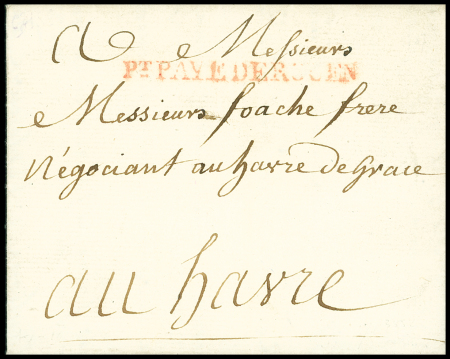 A Messieurs
PT PAYÉ DE ROUEN
Messieurs foache frere
Négociant au havre de Grace
au havre